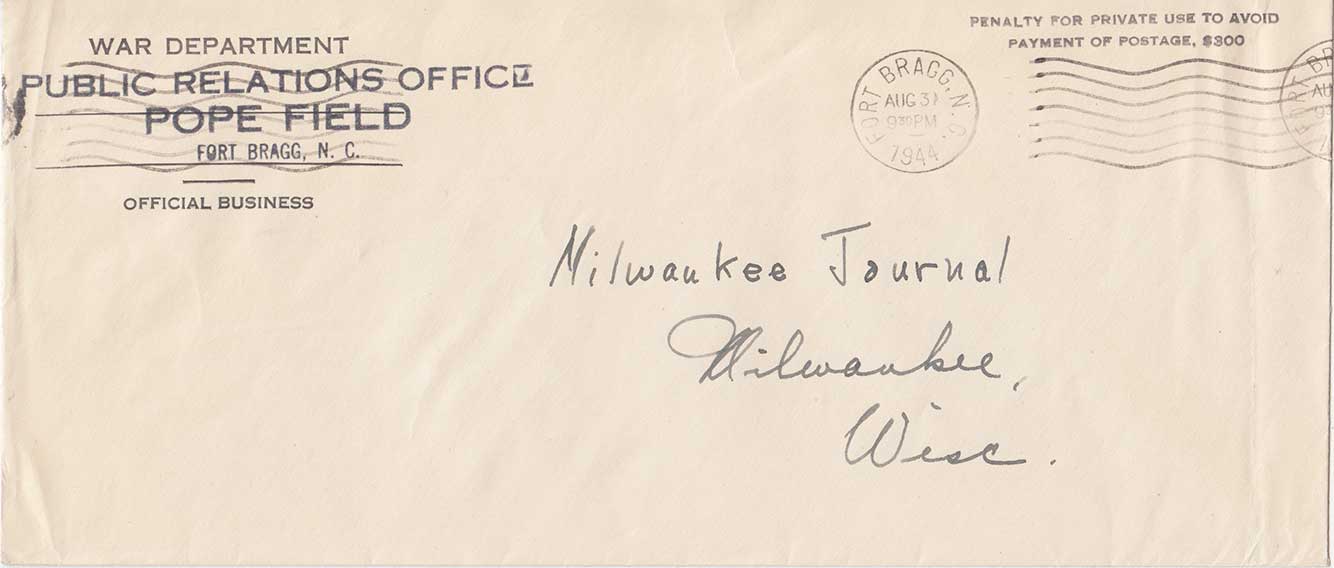 WAR DEPARTMENT
PUBLIC RELATIONS OFFICE
POPE FIELD
FORT BRAGG, N. C.
OFFICIAL BUSINESS
PENALTY FOR PRIVATE USE TO AVOID
PAYMENT OF POSTAGE, $300
FORT BRAGG, N.C.
AUG 31
9 30 PM
1944
FORT BR
AU
9
1
Milwaukee Journal
Milwaukee,
Wisc.